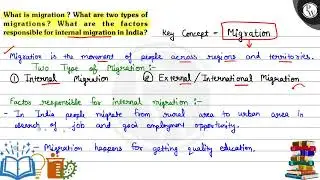 What is migration ? What are two types of
migrations? What are the factors
responsible for internal migration in India?
Key Concept - Migration
Migration is the movement of people across regions and territories.
Two Type of Migration :-
① Internal Migration ② External / International Migration
Factor responsible for internal migration :-
- In India people migrate from rural area to urban area in
search of job and good employment opportunity.
Migration happens for getting quality education.